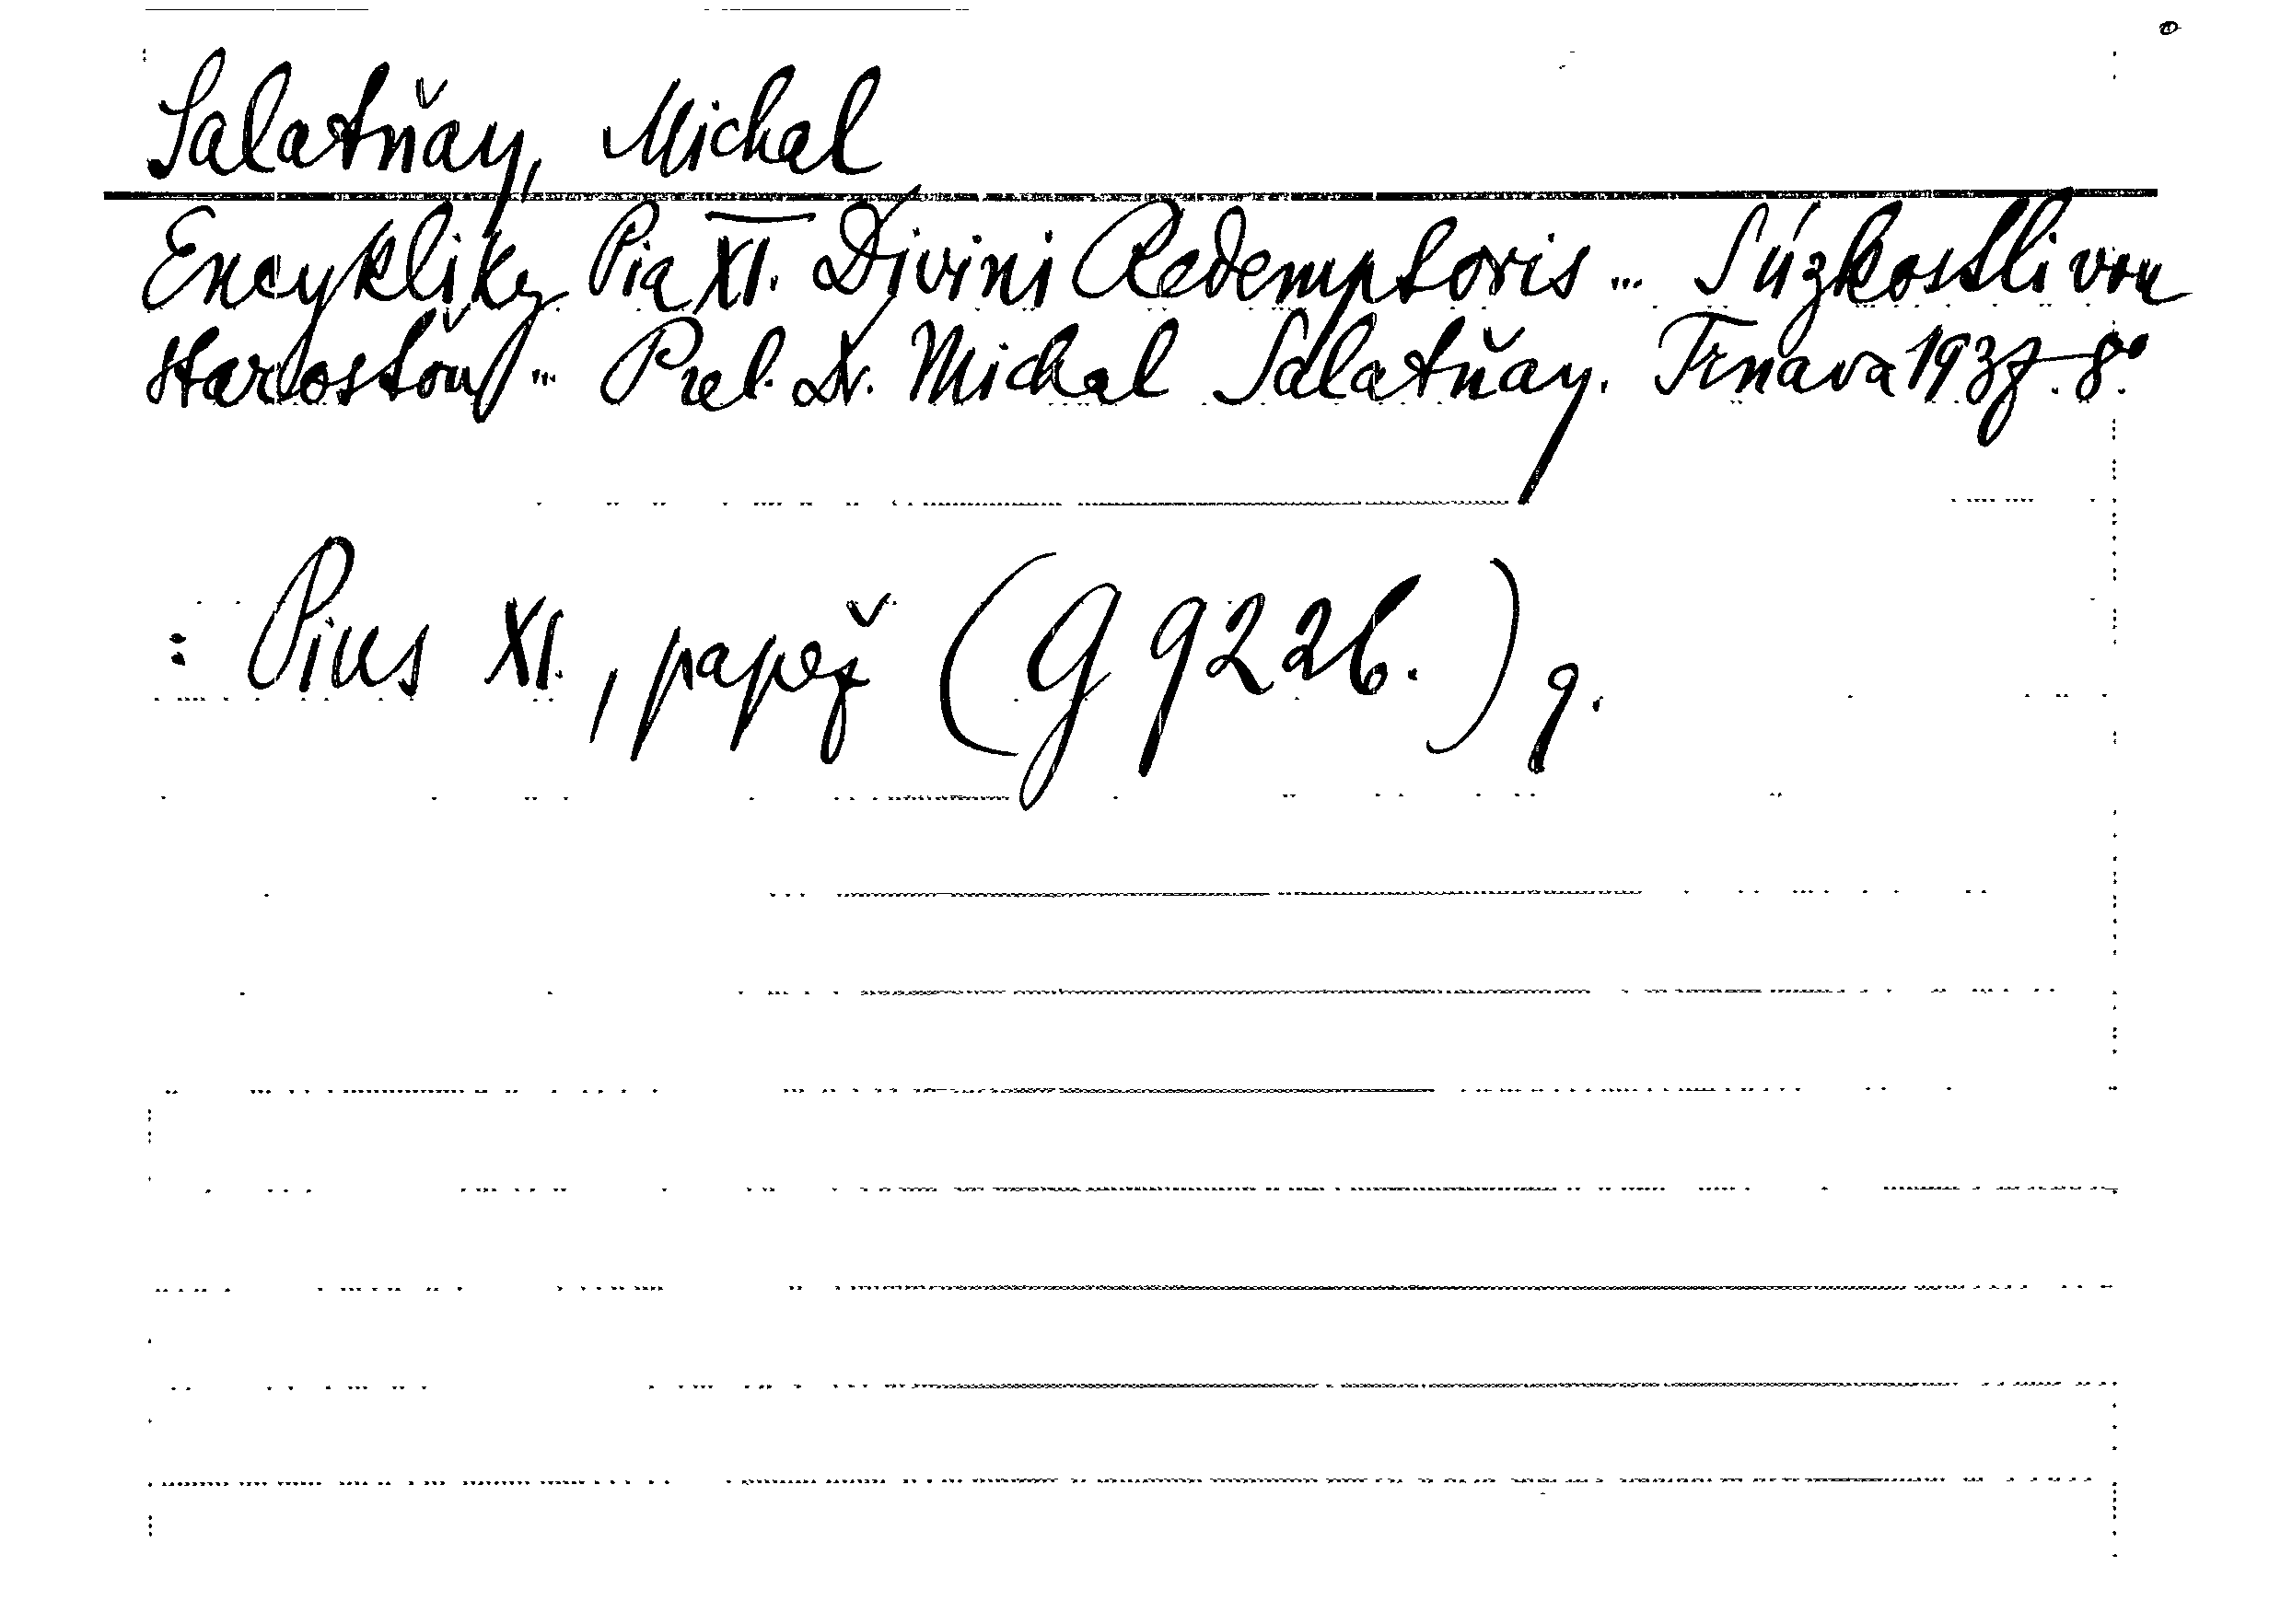 Salatňay, Michal
Encykliky Pia XI. Divini Redemptoris ... Súzkostlivou
starostou ... Prel. Dr. Michal Salatňay. Trnava 1937. 8°.
: Pius XI., papež (G 9226.) q.